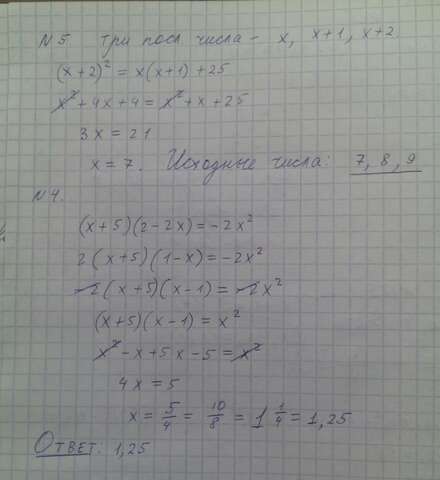 N 5 три посл числа - x, x+1, x+2
(x+2)² = x(x+1) + 25
x² + 4x + 4 = x² + x + 25
3x = 21
x = 7. Исходные числа: 7, 8, 9
N 4.
(x+5)(2-2x) = -2x²
2(x+5)(1-x) = -2x²
-2(x+5)(x-1) = -2x²
(x+5)(x-1) = x²
x² - x + 5x - 5 = x²
4x = 5
x = 5/4 = 10/8 = 1 1/4 = 1,25
Ответ: 1,25